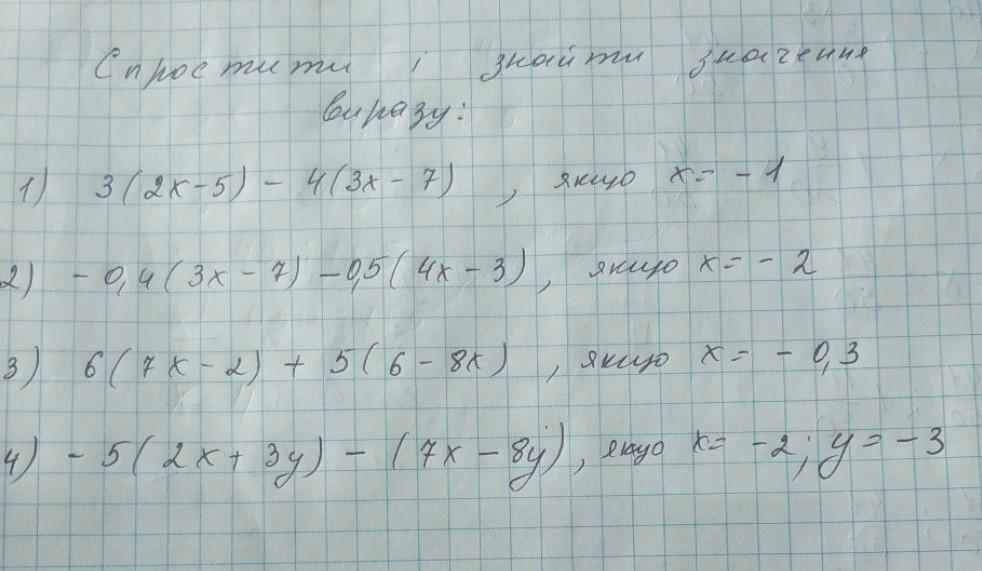 Спростити і знайти значення
виразу:
1) 3(2x-5) - 4(3x-7) , якщо x= -1
2) -0,4(3x-7) -0,5(4x-3), якщо x= -2
3) 6(7x-2) + 5(6-8x) , якщо x= -0,3
4) -5(2x+3y) - (7x-8y), якщо x= -2; y= -3